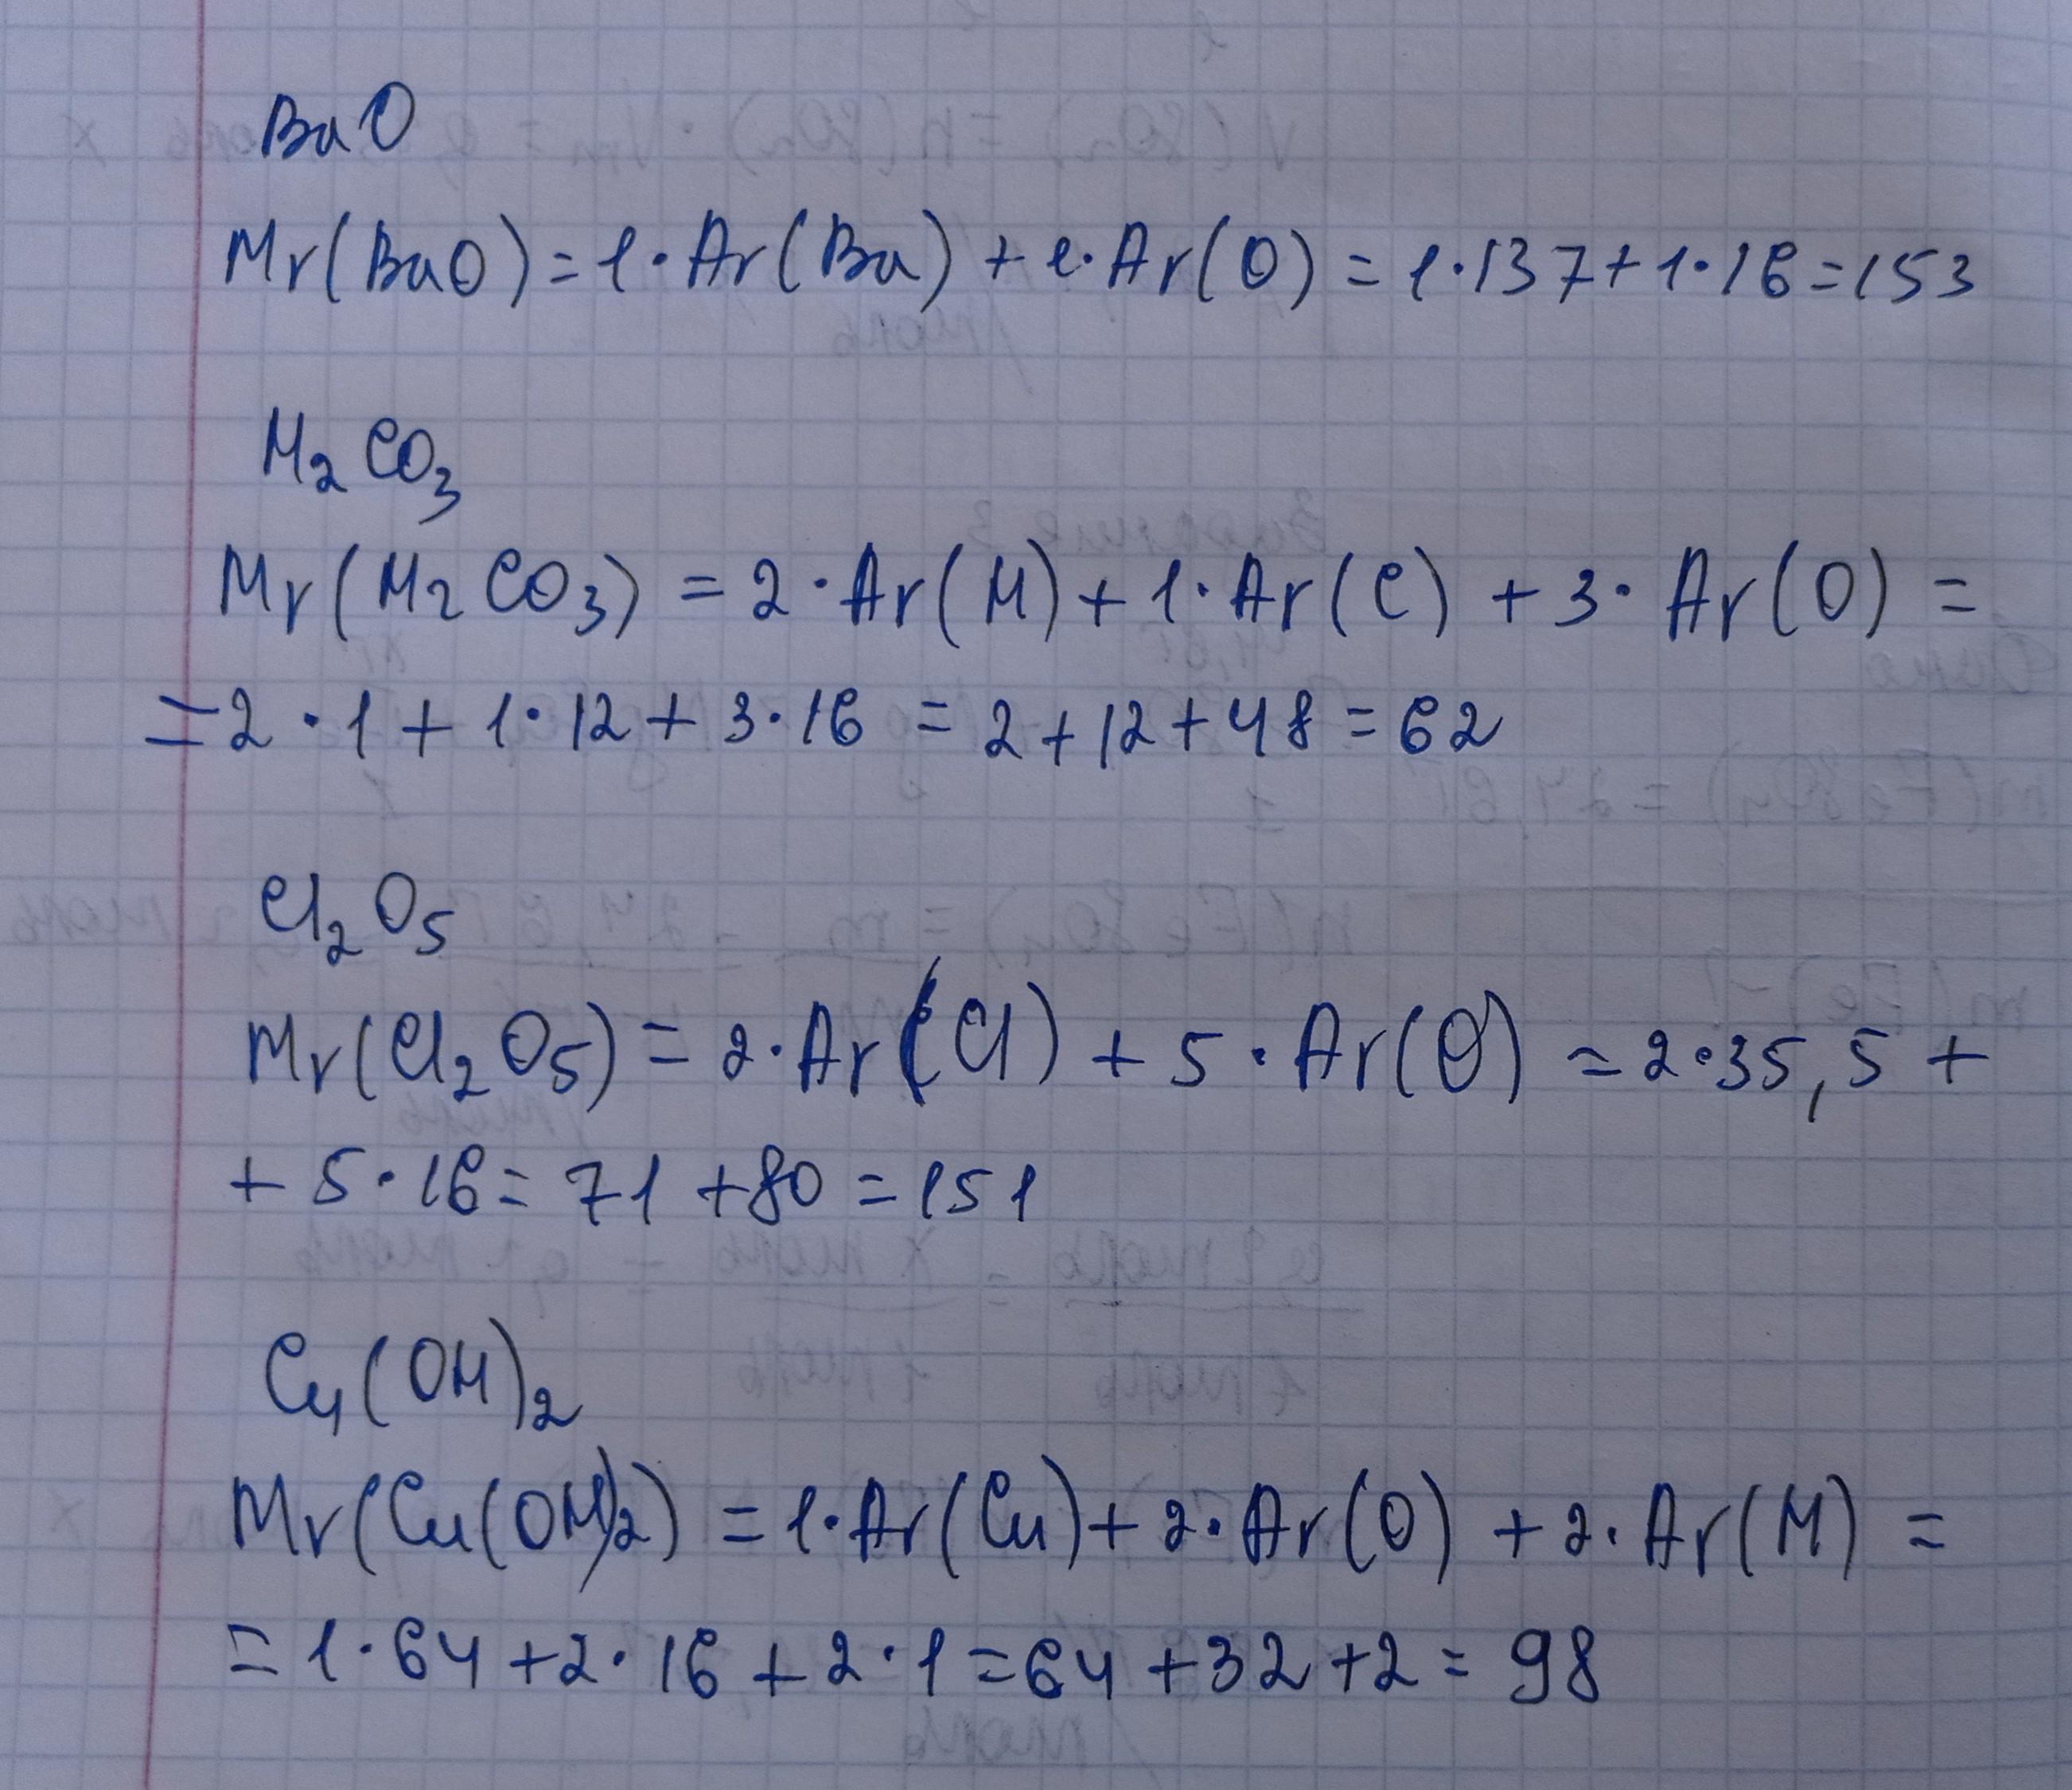 BaO
Mr(BaO)=1·Ar(Ba)+1·Ar(O)=1·137+1·16=153
H₂CO₃
Mr(H₂CO₃)=2·Ar(H)+1·Ar(C)+3·Ar(O)=
=2·1+1·12+3·16=2+12+48=62
Cl₂O₅
Mr(Cl₂O₅)=2·Ar(Cl)+5·Ar(O)=2·35,5+
+5·16=71+80=151
Cu(OH)₂
Mr(Cu(OH)₂)=1·Ar(Cu)+2·Ar(O)+2·Ar(H)=
=1·64+2·16+2·1=64+32+2=98